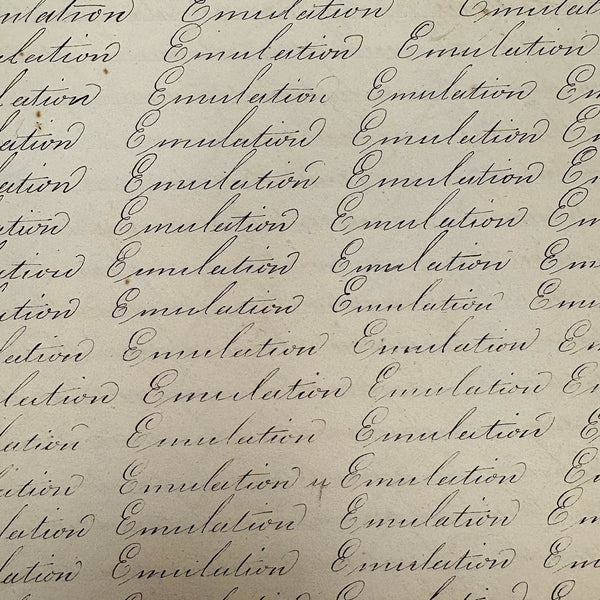 mulation Emulation Emulat
ulation Emulation Emulation
lation Emulation Emulation Em
lation Emulation Emulation E
ation Emulation Emulation E
ation Emulation Emulation Em
ation Emulation Emulation Em
ation Emulation Emulation Emu
lation Emulation Emulation Em
lation Emulation Emulation E
lation Emulation Emulation E
ation Emulation u Emulation E
lation Emulation Emulation Em
lation Emulation Emulation Em